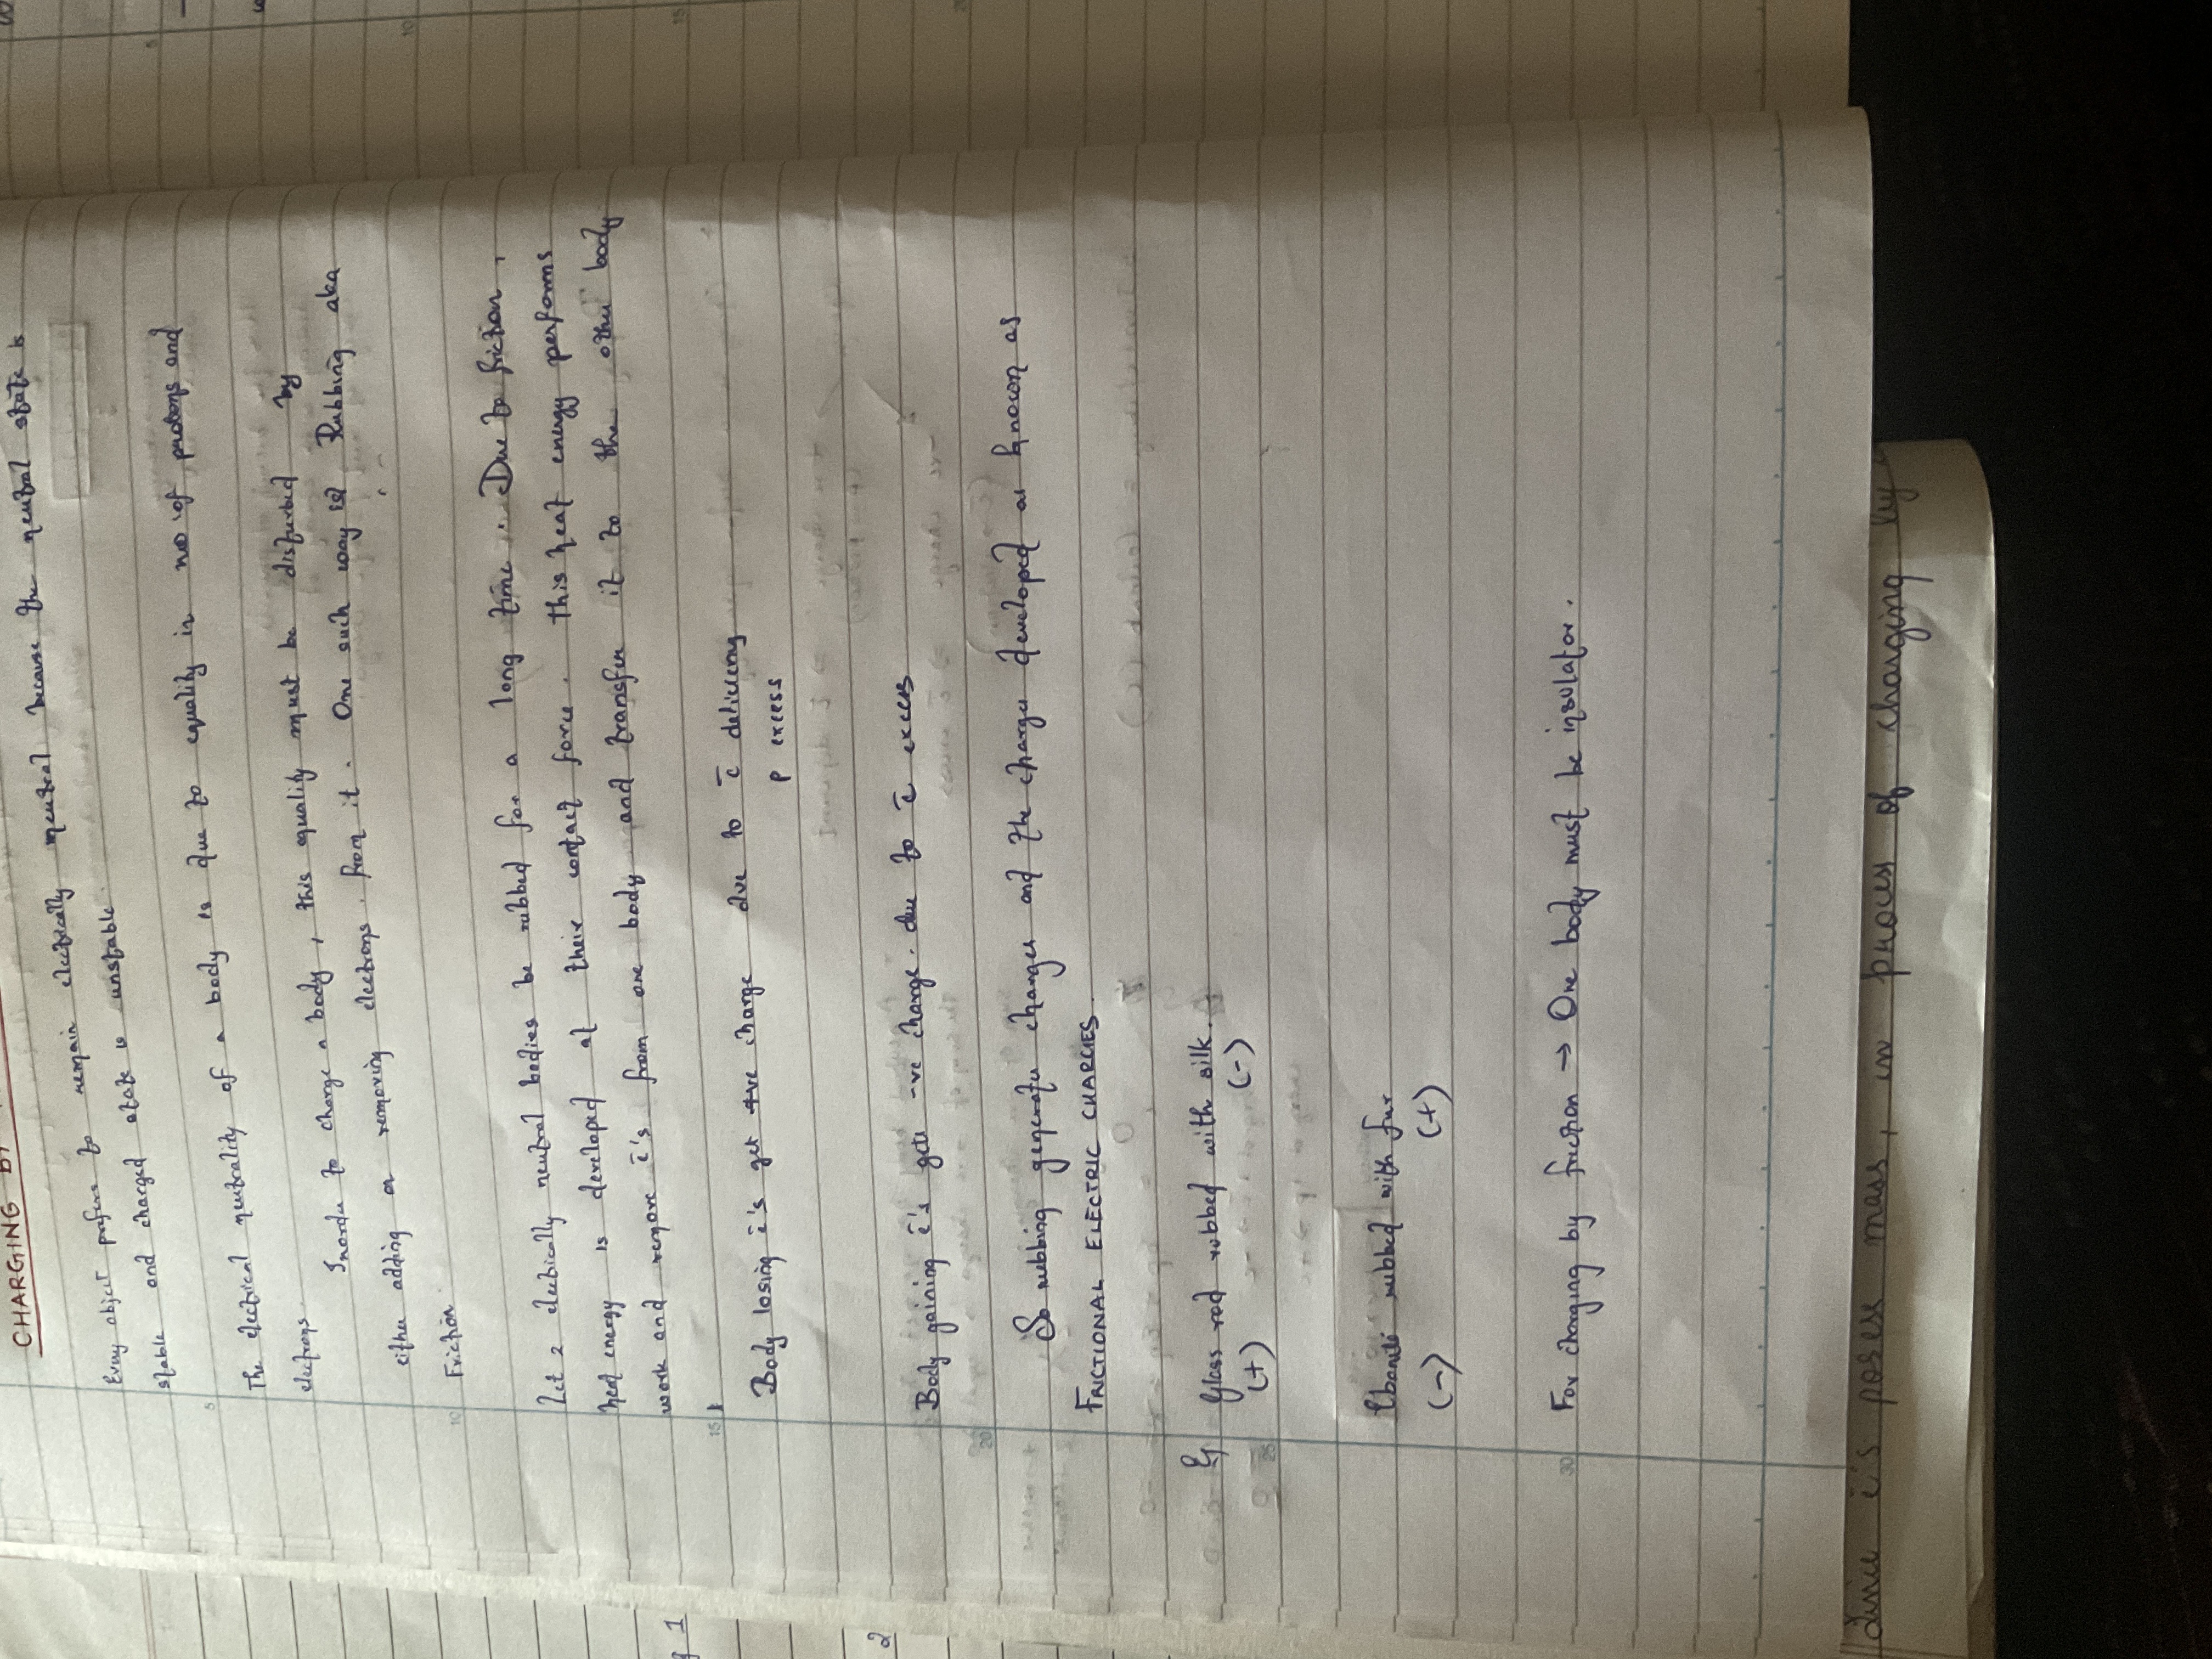 CHARGING BY
Every object prefers to remain electrically neutral because the neutral state is
stable and charged state is unstable.
The electrical neutrality of a body is due to equality in no of protons and
electrons.
Inorder to charge a body, this equality must be disturbed by
either adding or removing electrons from it. One such way is Rubbing aka
Friction.
Let 2 electrically neutral bodies be rubbed for a long time. Due to friction,
heat energy is developed at their contact force. this heat energy performs
work and remove ē's from one body and transfer it to the other body.
Body losing ē's get +ve charge due to ē deficieny
p excess
Body gaining ē's gets -ve charge. due to ē excess
So rubbing generates charges and the charges developed as known as
FRICTIONAL ELECTRIC CHARGES.
Eg Glass rod rubbed with silk.
(+) (-)
Ebonite rubbed with fur
(-) (+)
For charging by friction → One body must be insulator.
Since ē's poses mass, in process of charging by
5
10
15
20
25
30
5
10
15
1
2